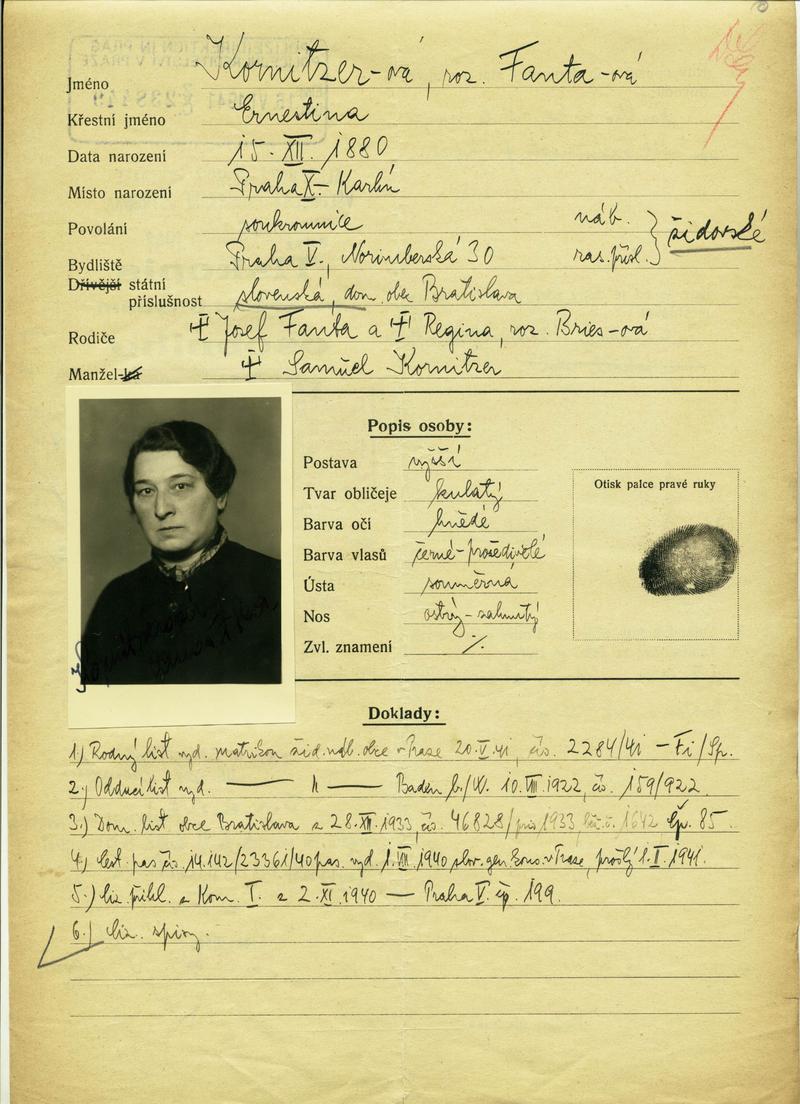 Jméno Kornitzer-ová, roz. Fanta-ová
Křestní jméno Ernestina
Data narození 15. XII. 1880
Místo narození Praha X - Karlín
Povolání soukromnice náb.
Bydliště Praha V., Norimberská 30 ras. přísl. } židovské
Dřívější státní
příslušnost slovenská, dom. obec Bratislava
Rodiče Josef Fanta a Regina, roz. Bries-ová
Manžel-ka Samuel Kornitzer
Popis osoby:
Postava vyšší
Tvar obličeje kulatý
Barva očí hnědé
Barva vlasů černé-prošedivělé
Ústa souměrná
Nos ostrý-zahnutý
Zvl. znamení ·/.
Otisk palce pravé ruky
Doklady:
1) Rodný list vyd. matrikou žid. náb. obce v Praze 20.V.41, čís. 2284/41 - Fi/Sp.
2.) Oddací list vyd. — " — Baden b./W. 10.VIII.1922, čs. 159/922.
3.) Dom. list obce Bratislava z 28.XII.1933, čs. 46828/ 1933 1642 85.
4.) Cest. pas čs. 14.142/23361/40 pas. vyd. 1.VII.1940 slov. gen. kons. v Praze, prošlý 1.I.1941.
5.) přihl. z Kom. I. z 2.XI.1940 — Praha V. čp. 199.
6.) spisy.